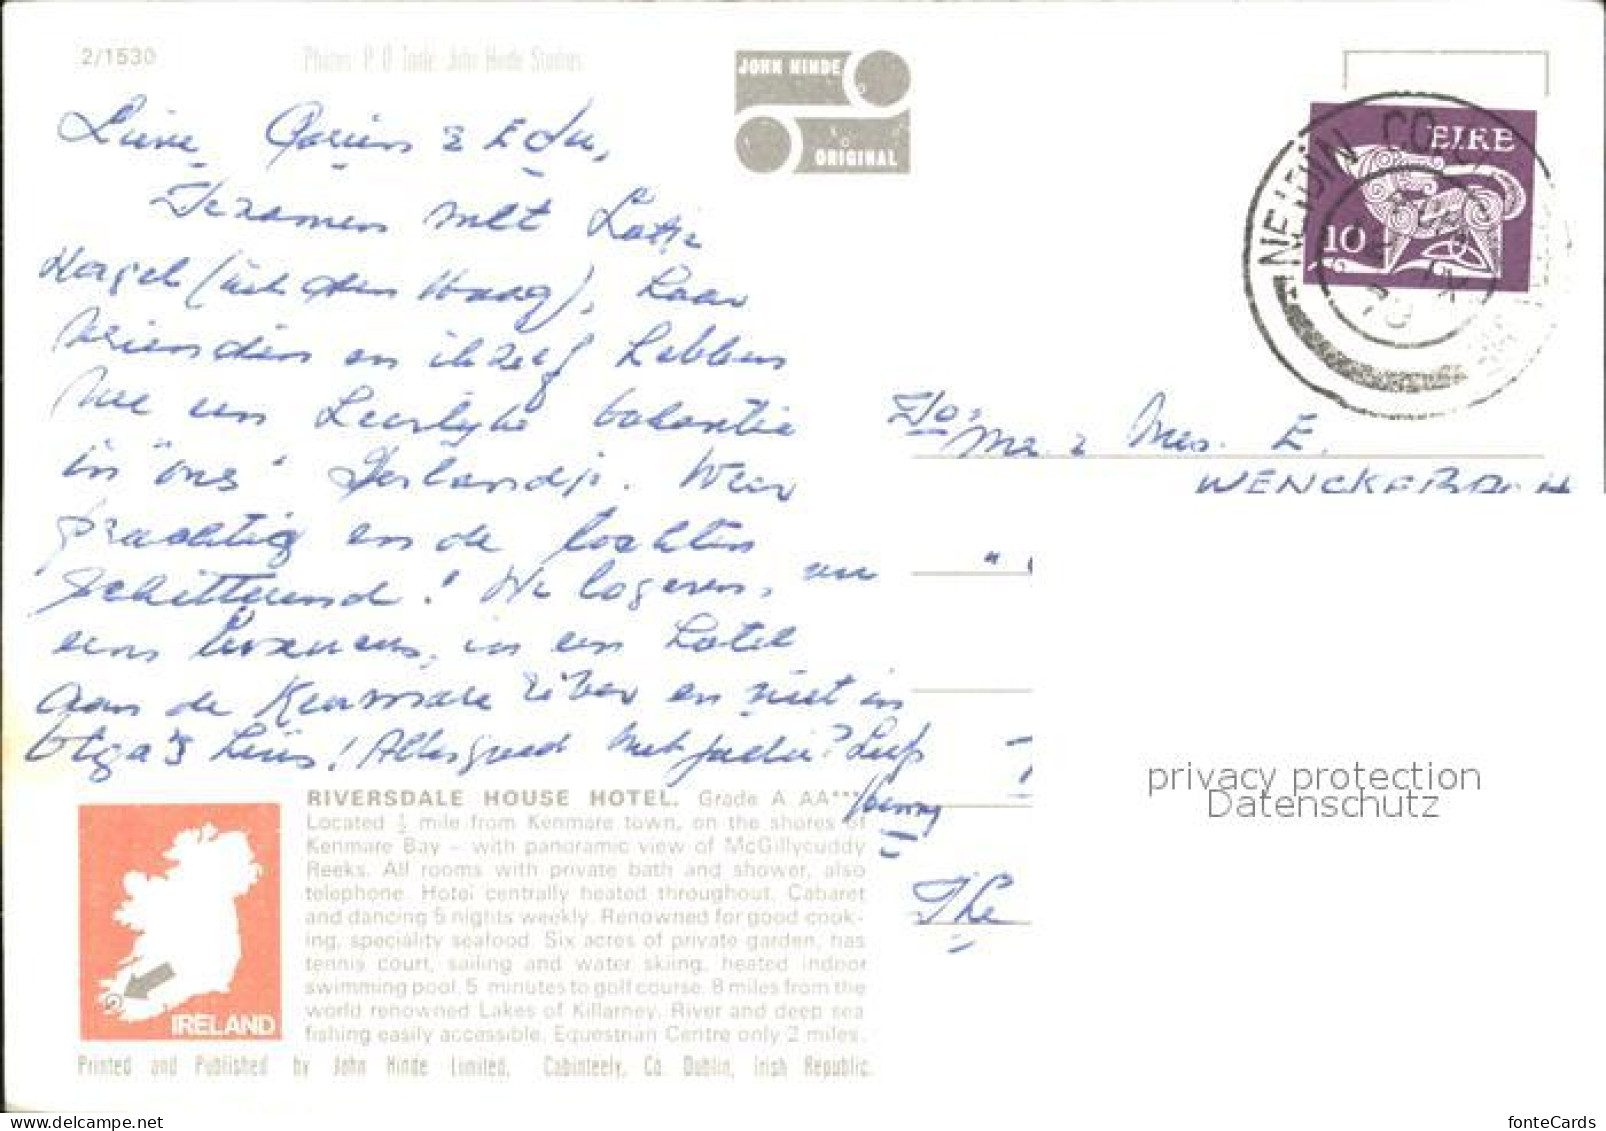 2/1530
Photos: P. O'Toole, John Hinde Studios
JOHN HINDE
ORIGINAL
EIRE
10
Lieve & Edu,
Tezamen met
(uit den Haag), haar
vrienden en ikzelf hebben
we een heerlijke vakantie
in "ons" Ierlandje. Weer
prachtig en de tochten
schitterend! We logeren, nu
eens in een hotel
aan de Kenmare River en niet in
Olga's huis! Alles goed met jullie? Liefs
Henny
To:
Mr. & Mrs. E.
WENCKEBACH
The
RIVERSDALE HOUSE HOTEL. Grade A AA***
Located ½ mile from Kenmare town, on the shores of
Kenmare Bay – with panoramic view of McGillycuddy
Reeks. All rooms with private bath and shower, also
telephone. Hotel centrally heated throughout. Cabaret
and dancing 5 nights weekly. Renowned for good cook-
ing, speciality seafood. Six acres of private garden, has
tennis court, sailing and water skiing, heated indoor
swimming pool. 5 minutes to golf course. 8 miles from the
world renowned Lakes of Killarney. River and deep sea
fishing easily accessible. Equestrian Centre only 2 miles.
IRELAND
Printed and Published by John Hinde Limited, Cabinteely, Co. Dublin, Irish Republic.
privacy protection
Datenschutz
fonteCards